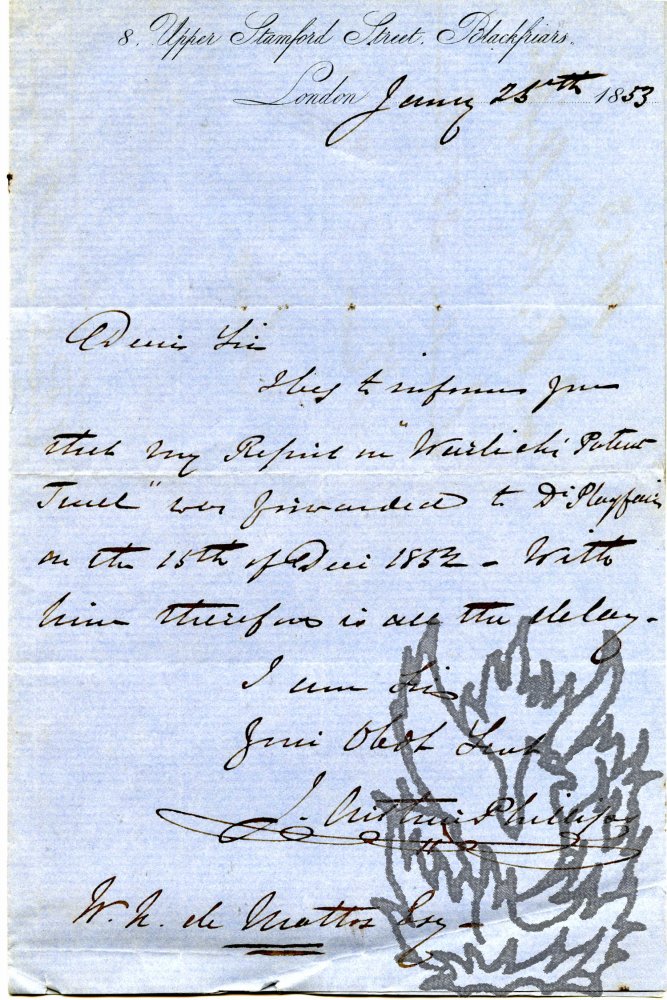 8. Upper Stamford Street, Blackfriars.
London Jany 25th 1853
Dear Sir
I beg to inform you
that my Report on "Warlich's Patent
Fuel" was forwarded to Dr Playfair
on the 15th of Decr 1852 - With
him therefore is all the delay -
I am Sir
Your Obdt Servt
J. Arthur Phillips
W. N. de Mattos Esq -